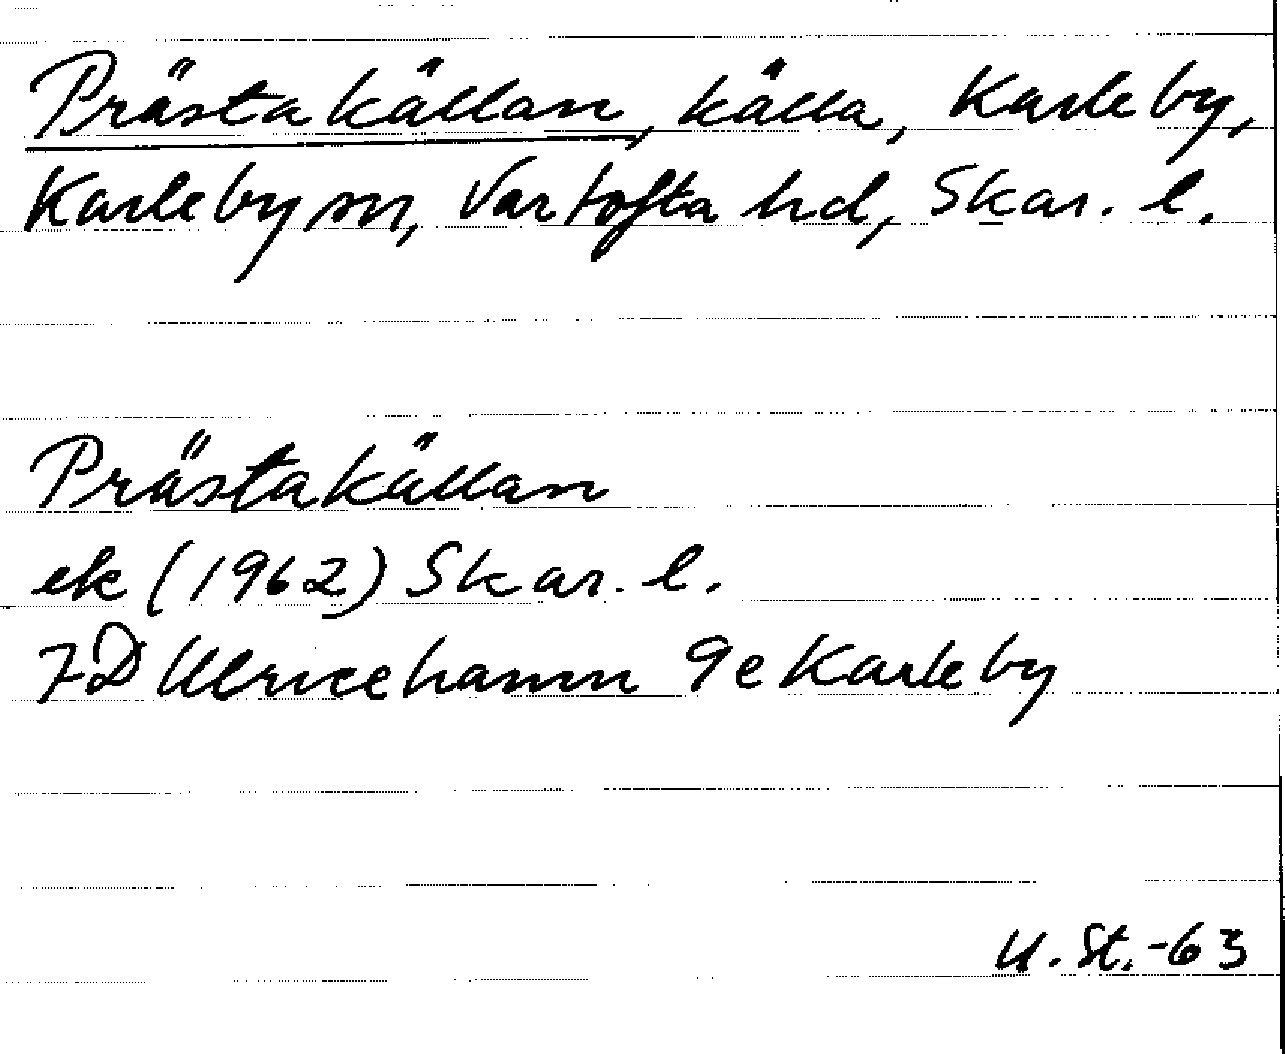 Prästakällan, källa, Karleby,
Karleby sn, Vartofta hd, Skar. l.
Prästakällan
ek (1962) Skar. l.
7D Ulricehamn 9e Karleby
U. St. -63